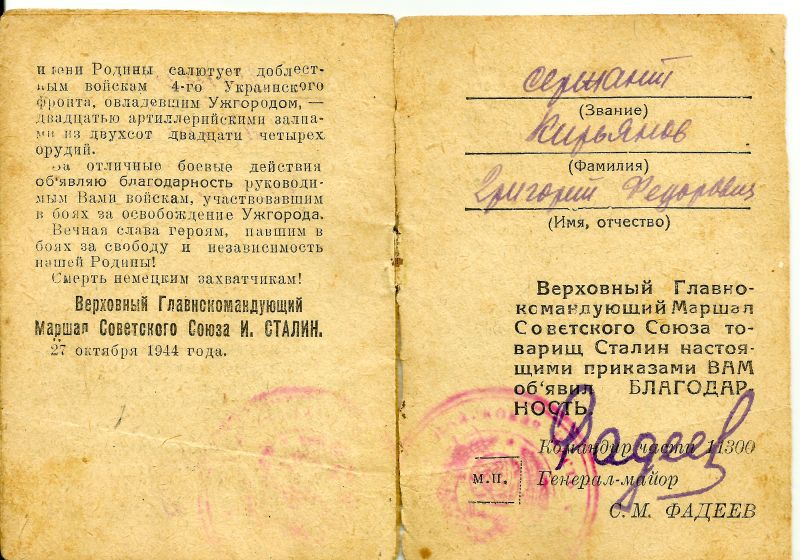 имени Родины салютует доблест-
ным войскам 4-го Украинского
фронта, овладевшим Ужгородом, —
двадцатью артиллерийскими залпа-
ми из двухсот двадцати четырех
орудий.
За отличные боевые действия
об'являю благодарность руководи-
мым Вами войскам, участвовавшим
в боях за освобождение Ужгорода.
Вечная слава героям, павшим в
боях за свободу и независимость
нашей Родины!
Смерть немецким захватчикам!
Верховный Главнокомандующий
Маршал Советского Союза И. СТАЛИН.
27 октября 1944 года.
сержант
(Звание)
Кирьянов
(Фамилия)
Григорий Федорович
(Имя, отчество)
Верховный Главно-
командующий Маршал
Советского Союза то-
варищ Сталин настоя-
щими приказами ВАМ
об'явил БЛАГОДАР-
НОСТЬ.
Фадеев
Командир части 11300
м.п.
Генерал-майор
С. М. ФАДЕЕВ